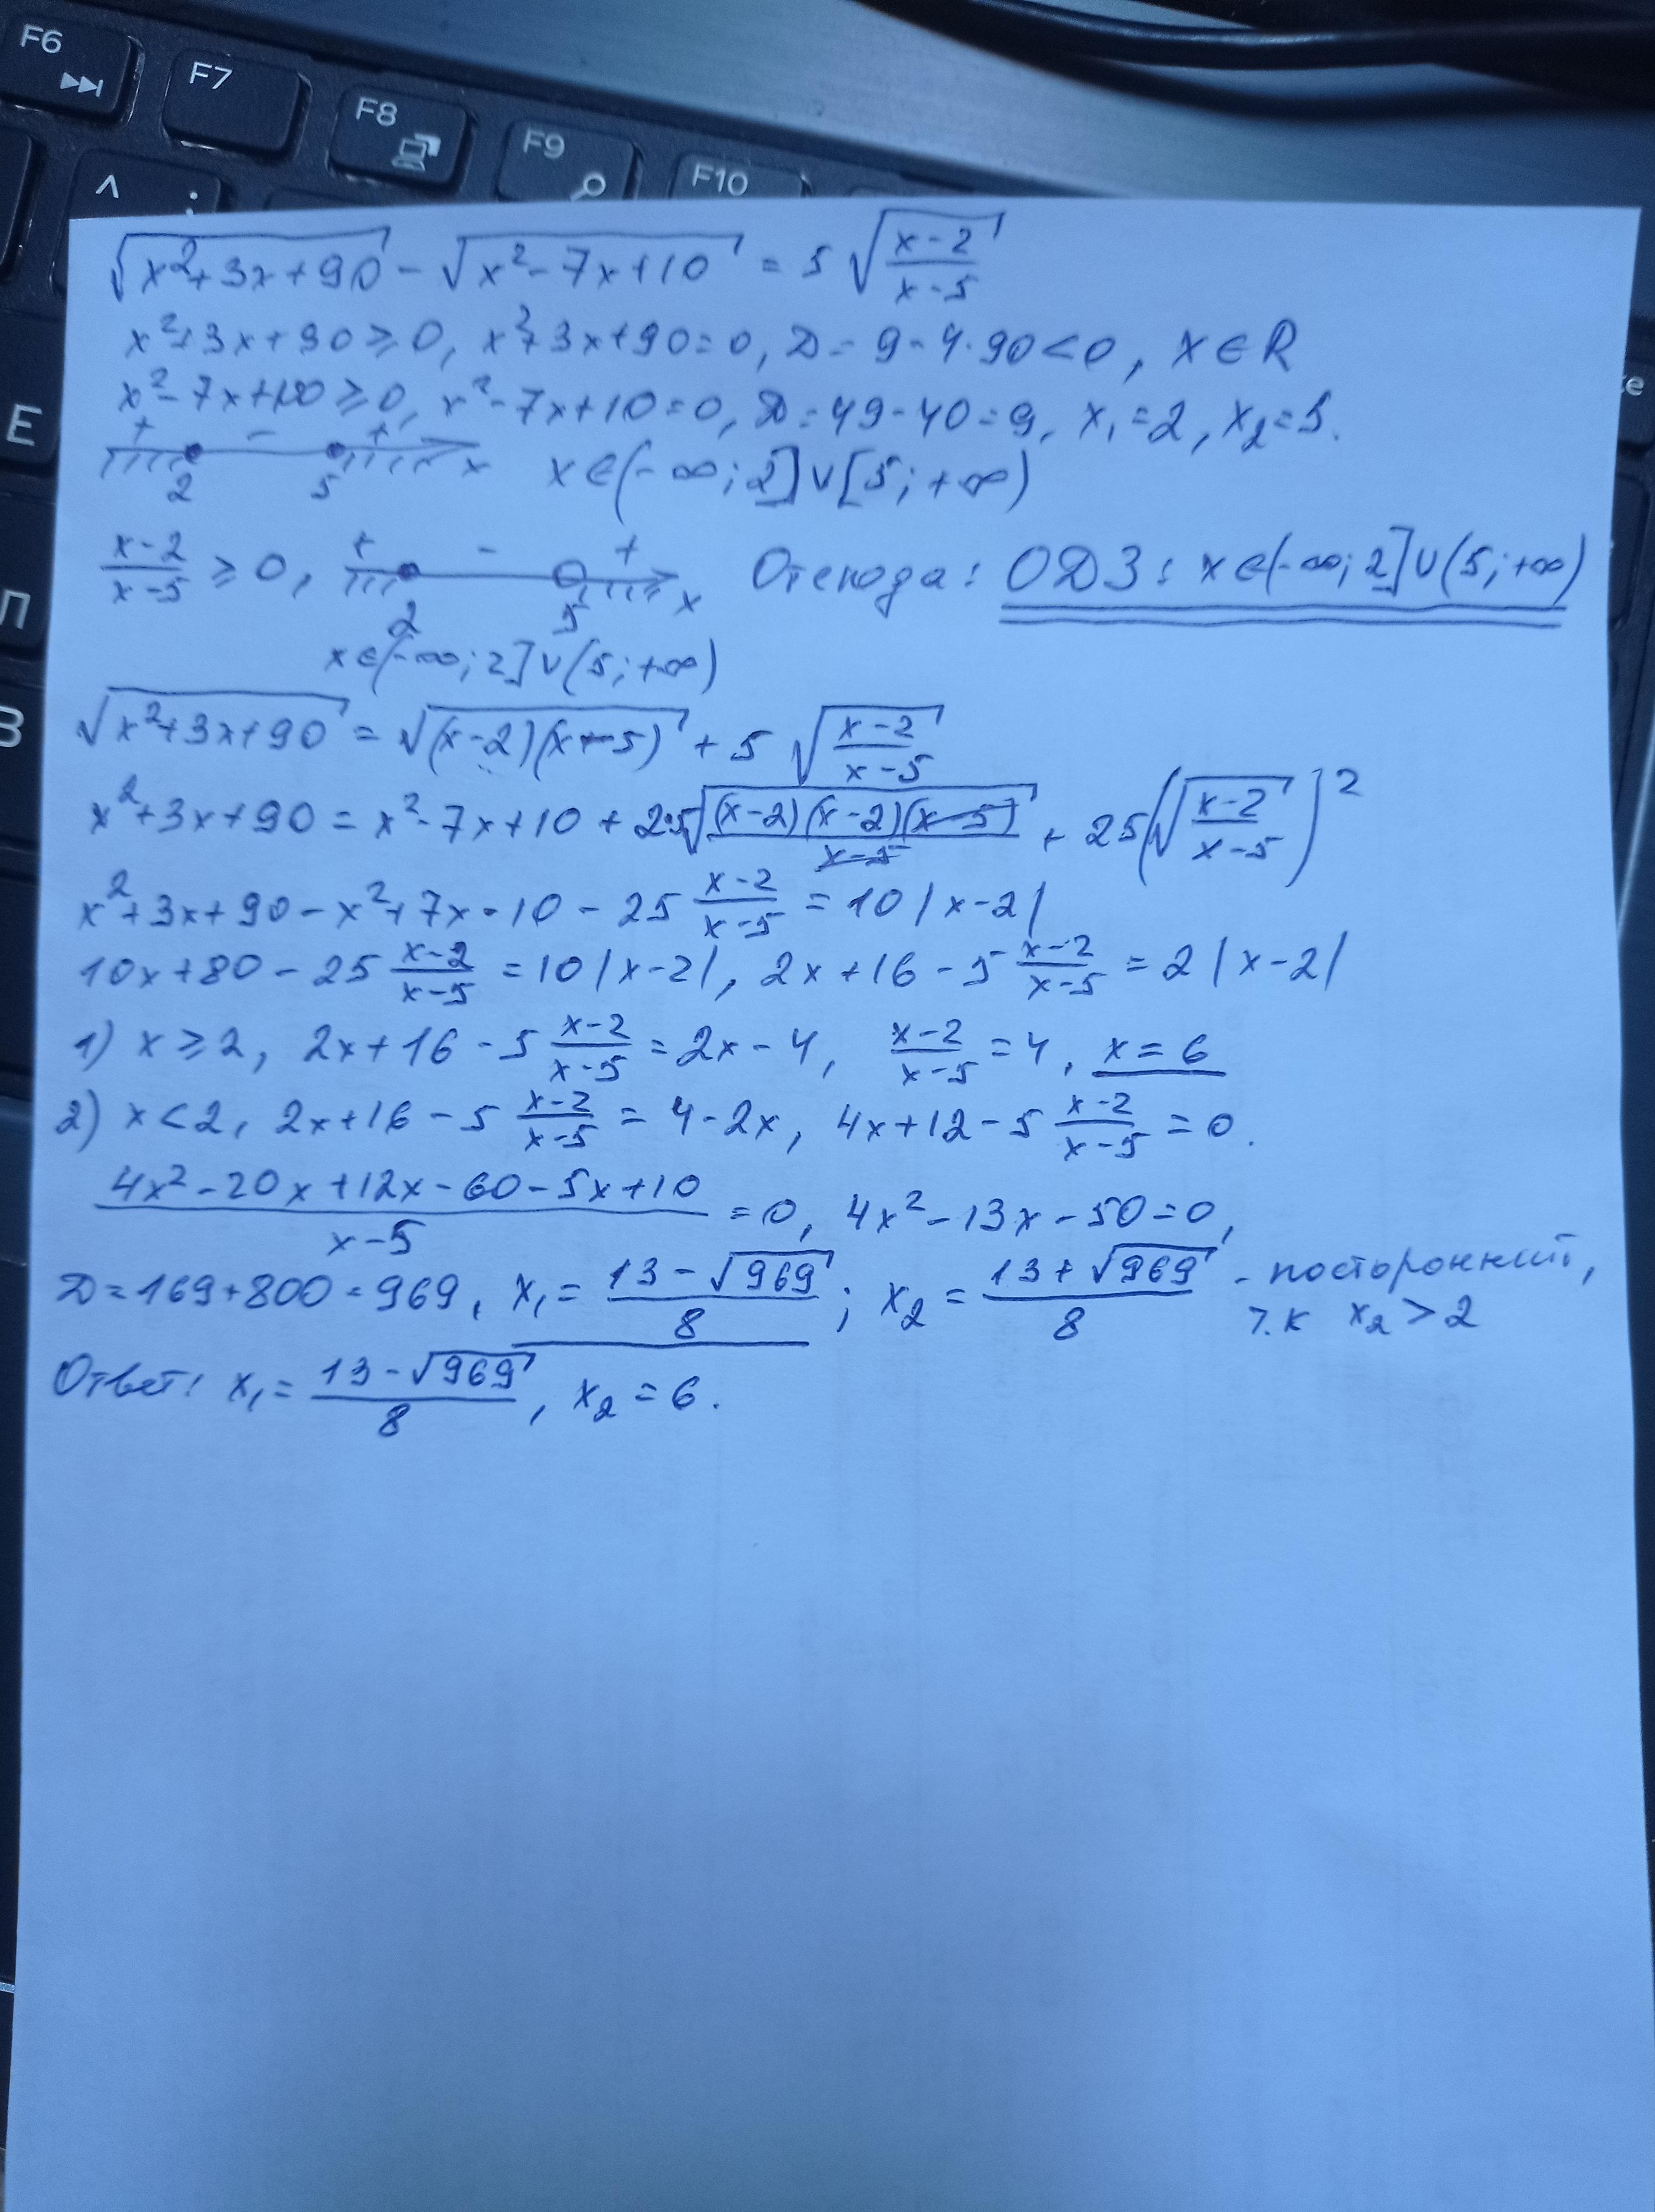 F6
F7
F8
F9
F10
Е
Л
В
√(x²+3x+90) - √(x²-7x+10) = 5√((x-2)/(x-5))
x²+3x+90≥0, x²+3x+90=0, D=9-4·90<0, x∈R
x²-7x+10≥0, x²-7x+10=0, D=49-40=9, x₁=2, x₂=5.
+ - +
2 5 x x∈(-∞;2]∪[5;+∞)
(x-2)/(x-5) ≥ 0, + - + Отсюда: ОДЗ: x∈(-∞;2]∪(5;+∞)
2 5 x
x∈(-∞;2]∪(5;+∞)
√(x²+3x+90) = √((x-2)(x-5)) + 5√((x-2)/(x-5))
x²+3x+90 = x²-7x+10 + 2·5√((x-2)(x-2)(x-5)/(x-5)) + 25(√((x-2)/(x-5)))²
x²+3x+90-x²+7x-10-25(x-2)/(x-5) = 10|x-2|
10x+80-25(x-2)/(x-5) = 10|x-2|, 2x+16-5(x-2)/(x-5) = 2|x-2|
1) x≥2, 2x+16-5(x-2)/(x-5) = 2x-4, (x-2)/(x-5) = 4, x=6
2) x<2, 2x+16-5(x-2)/(x-5) = 4-2x, 4x+12-5(x-2)/(x-5) = 0.
(4x²-20x+12x-60-5x+10)/(x-5) = 0, 4x²-13x-50=0,
D=169+800=969, x₁=(13-√969)/8; x₂=(13+√969)/8 - посторонний,
т.к x₂>2
Ответ: x₁=(13-√969)/8, x₂=6.